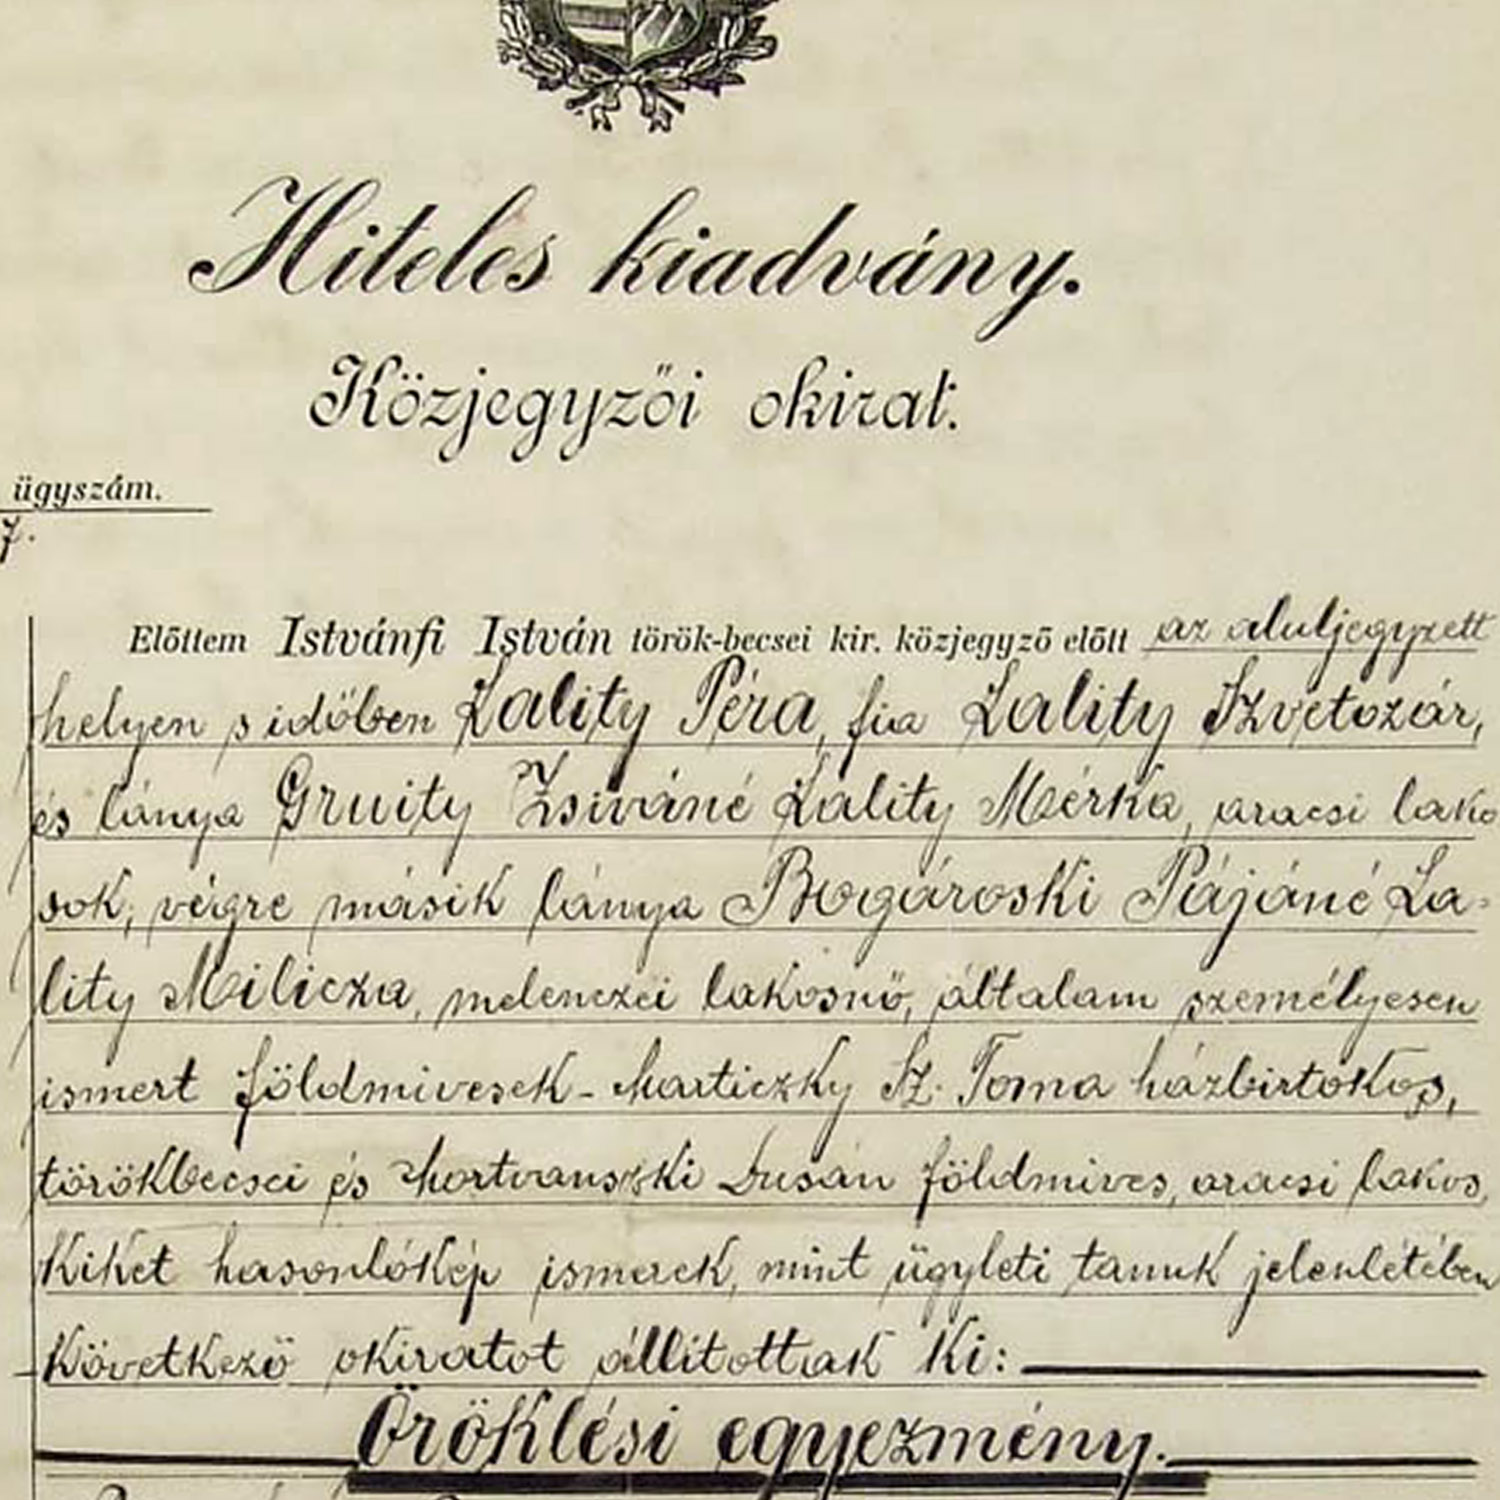 Hiteles kiadvány.
Közjegyzői okirat.
ügyszám.
7.
Előttem Istvánfi István török-becsei kir. közjegyző előtt az aluljegyzett
helyen s időben Lality Péra, fia Lality Szvetozár,
és lánya Gruity Zsiváné Lality Mérka, aracsi lako
sok, végre másik lánya Bogároski Pájáné La-
lity Milicza, melenczei lakosnő, általam személyesen
ismert földmivesek - Marticzky Sz. Toma házbirtokos,
törökbecsei és Dusán földmives, aracsi lakos,
kiket hasonlókép ismerek, mint ügyleti tanuk jelenlétében
következő okiratot állítottak ki:
Öröklési egyezmény.